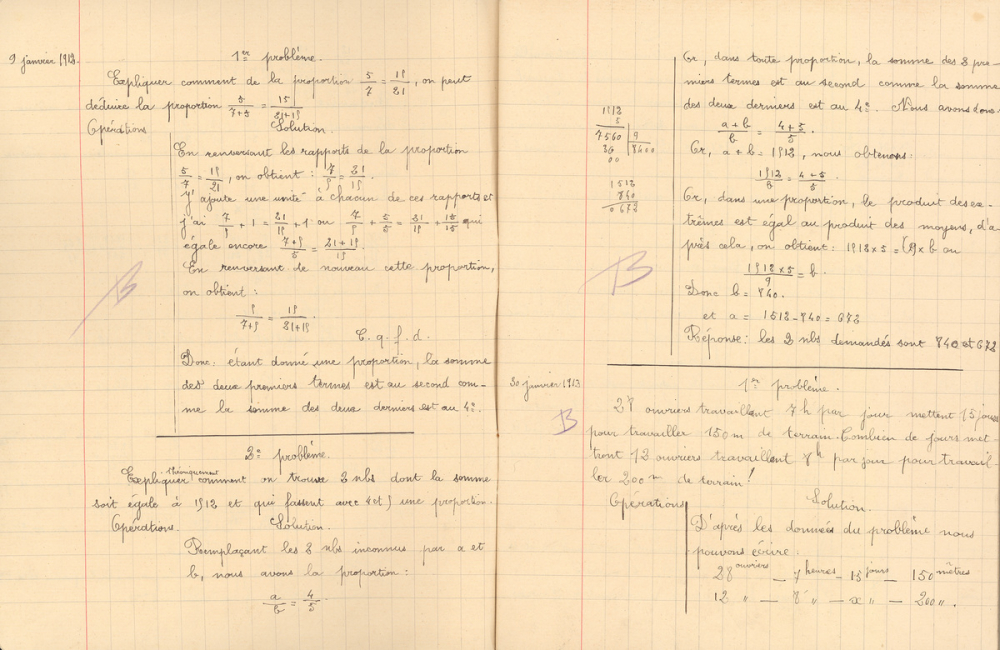 9 janvier 1913.
1er problème.
Expliquer comment de la proportion 5/7 = 15/21, on peut
déduire la proportion 5/7+5 = 15/21+15
Opérations
Solution.
En renversant les rapports de la proportion
5/7 = 15/21, on obtient : 7/5 = 21/15.
J'ajoute une unité à chacun de ces rapports et
j'ai 7/5 + 1 = 21/15 + 1 ou 7/5 + 5/5 = 21/15 + 15/15 qui
égale encore 7+5/5 = 21+15/15
En renversant de nouveau cette proportion,
on obtient :
5/7+5 = 15/21+15.
C. q. f. d.
Donc : étant donné une proportion, la somme
des deux premiers termes est au second com-
me la somme des deux derniers est au 4e.
2e problème.
Expliquer théoriquement comment on trouve 2 nbs dont la somme
soit égale à 1512 et qui fassent avec 4 et 5 une proportion.
Opérations.
Solution.
Remplaçant les 2 nbs inconnus par a et
b, nous avons la proportion :
a/b = 4/5.
Or, dans toute proportion, la somme des 2 pre-
miers termes est au second comme la somme
des deux derniers est au 4e. Nous avons donc
a+b/b = 4+5/5.
Or, a+b = 1512, nous obtenons :
1512/b = 4+5/5.
Or, dans une proportion, le produit des ex-
trêmes est égal au produit des moyens, d'a-
près cela, on obtient : 1512 x 5 = (9) x b ou
1512 x 5/9 = b.
Donc b = 840.
et a = 1512 - 840 = 672
Réponse : les 2 nbs demandés sont 840 et 672
1512
5
7560 | 9
36 | 840
00
1512
840
0672
30 janvier 1913
1er problème.
28 ouvriers travaillant 7 h par jour mettent 15 jours
pour travailler 150 m de terrain. Combien de jours met
tront 12 ouvriers travaillant 8 h par jour pour travail
ler 200 m de terrain !
Opérations
Solution.
D'après les données du problème nous
pouvons écrire :
28 ouvriers — 7 heures — 15 jours — 150 mètres
12 " — 8 " — x " — 200 " .